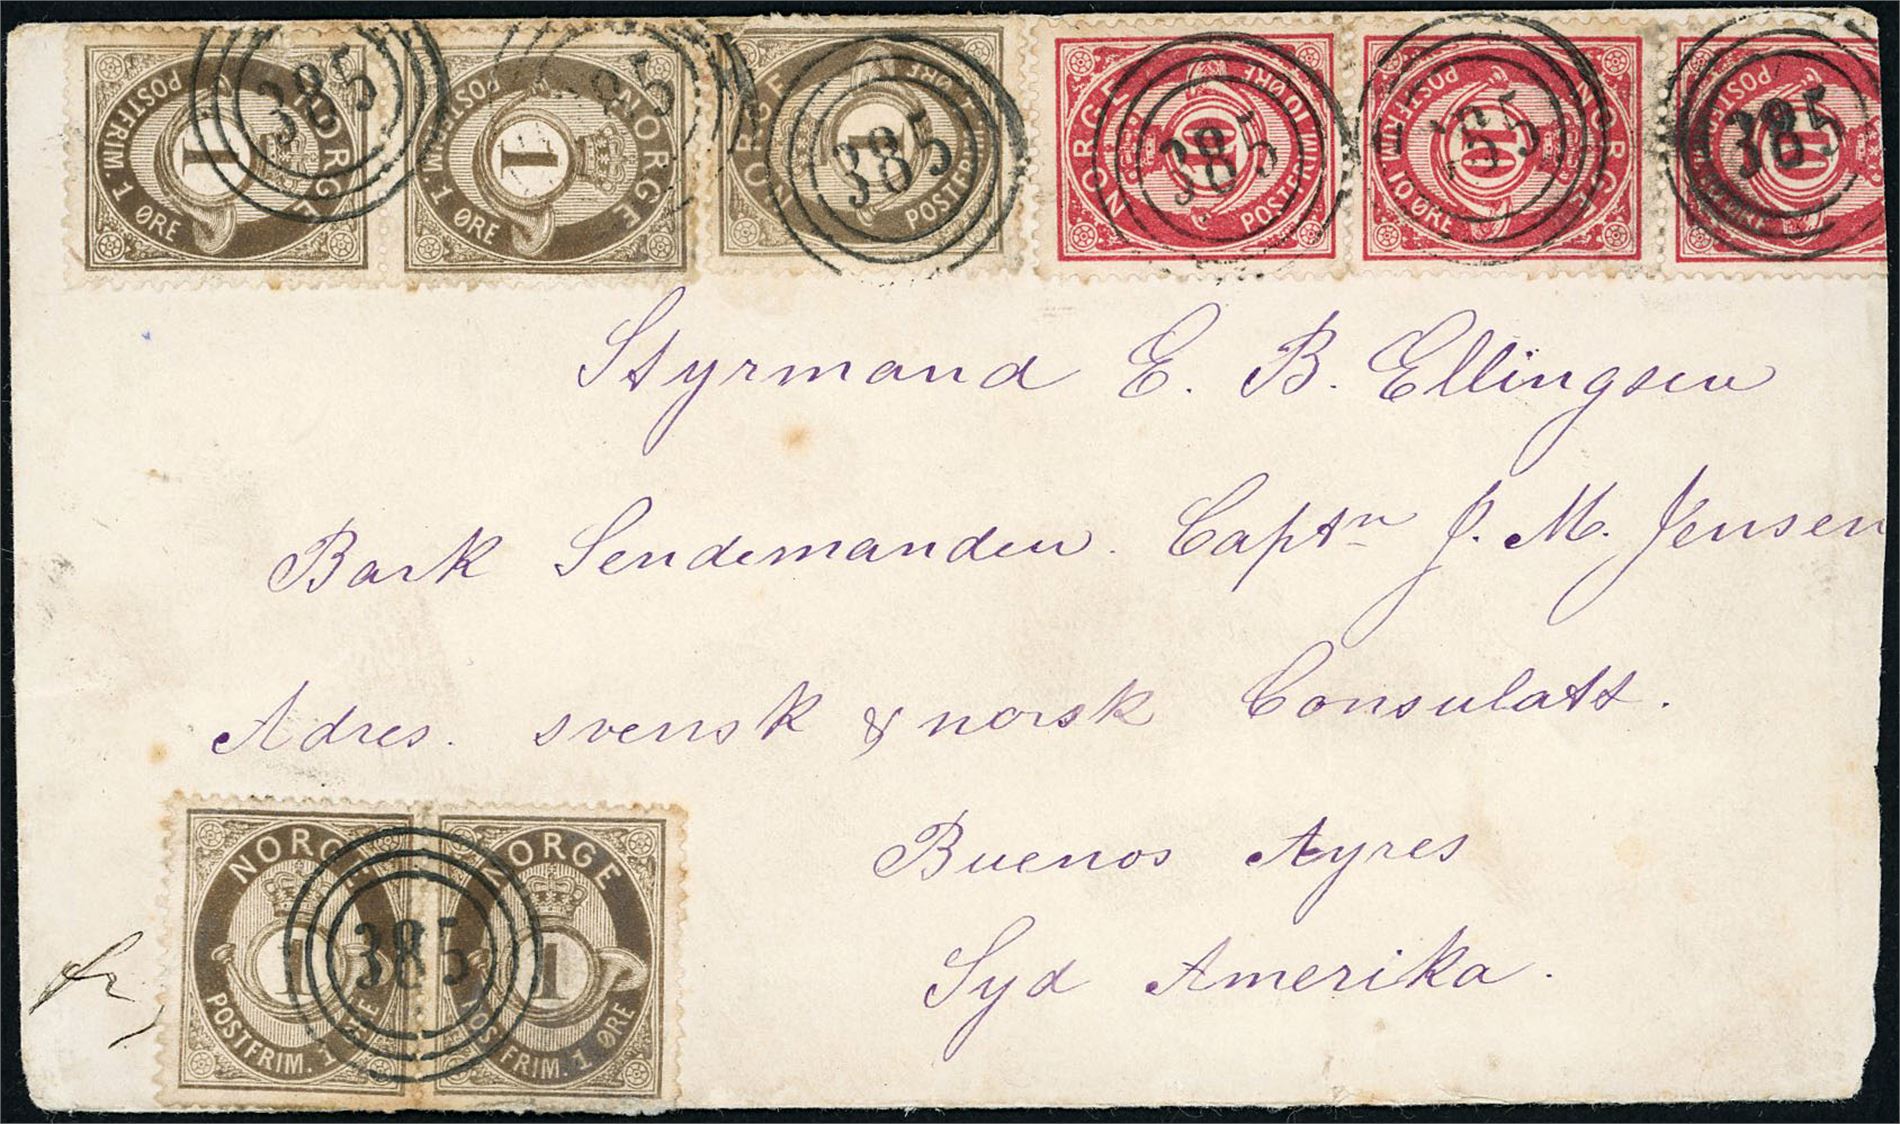 NORGE POSTFRIM. 1 ØRE 1 385
NORGE POSTFRIM. 1 ØRE 1 385
NORGE POSTFRIM. 1 ØRE 1 385
NORGE POSTFRIM. 10 ØRE 10 385
NORGE POSTFRIM. 10 ØRE 10 385
POSTFRIM. 10 ØRE 10 385
Styrmand E. B. Ellingsen
Bark Sendemanden. Captn J. M. Jensen
Adres. svensk & norsk Consulatt.
Buenos Ayres
Syd Amerika.
NORGE 1 POSTFRIM. 1 ØRE
385
NORGE 1 POSTFRIM. 1 ØRE